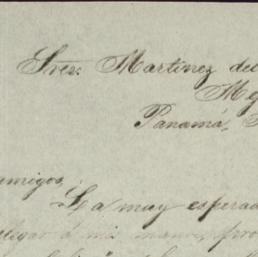 Sres. Martinez del
Panamá,
amigos,
La muy esperad
llegar á mis manos, pro